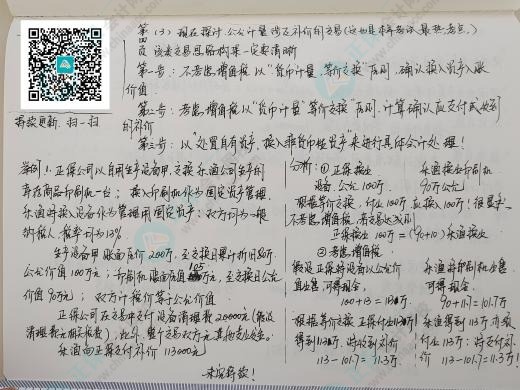 第四页
(3) 现在探讨:公允计量涉及补价的交易(这也是本年考试最热考点)
该类交易思路构架一定要清晰
第一步:不考虑增值税以"货币计量、等价交换"原则,确认换入资产入账
价值
第二步:考虑增值税以"货币计量、等价交换"原则,计算确认应支付或收到
的补价
第三步:以"处置自有资产,换入非货币性资产"来进行具体会计处理!
释放更新 扫一扫
举例1.正保公司以自用生产设备甲,交换乐渔公司生产的
库存商品印刷机一台;换入印刷机作为固定资产管理,
乐渔对换入设备作为管理用固定资产;双方均为一般
纳税人,税率均为13%
生产设备甲 账面原价200万,至交换日累计折旧80万
公允价值100万元;印刷机账面价值105万元,至交换日公允
价值90万元;双方计税价等于公允价值
正保公司在交易中支付设备清理费20000元(假设
清理费无相关税费);此外,整个交易双方无其他支出发生。
乐渔向正保支付补价113000元
未完待续!
分析:①正保换出 乐渔换出印刷机
设备,公允100万 90万公允
根据等价交换,付出100万 应换入100万!很显然
不考虑增值税,若交易达成则
正保换出100万=(90+10)乐渔换出
②考虑增值税
假设正保将设备以公允价 乐渔将印刷机出售
直出售,可得现金, 可得现金,
100+13=113万 90+11.7=101.7万
根据等价交换 正保付出113万 乐渔得到113万,亦须
得到113万;将收到补价 付出113万;将支付补
113-101.7=11.3万 价 113-101.7=11.3万!